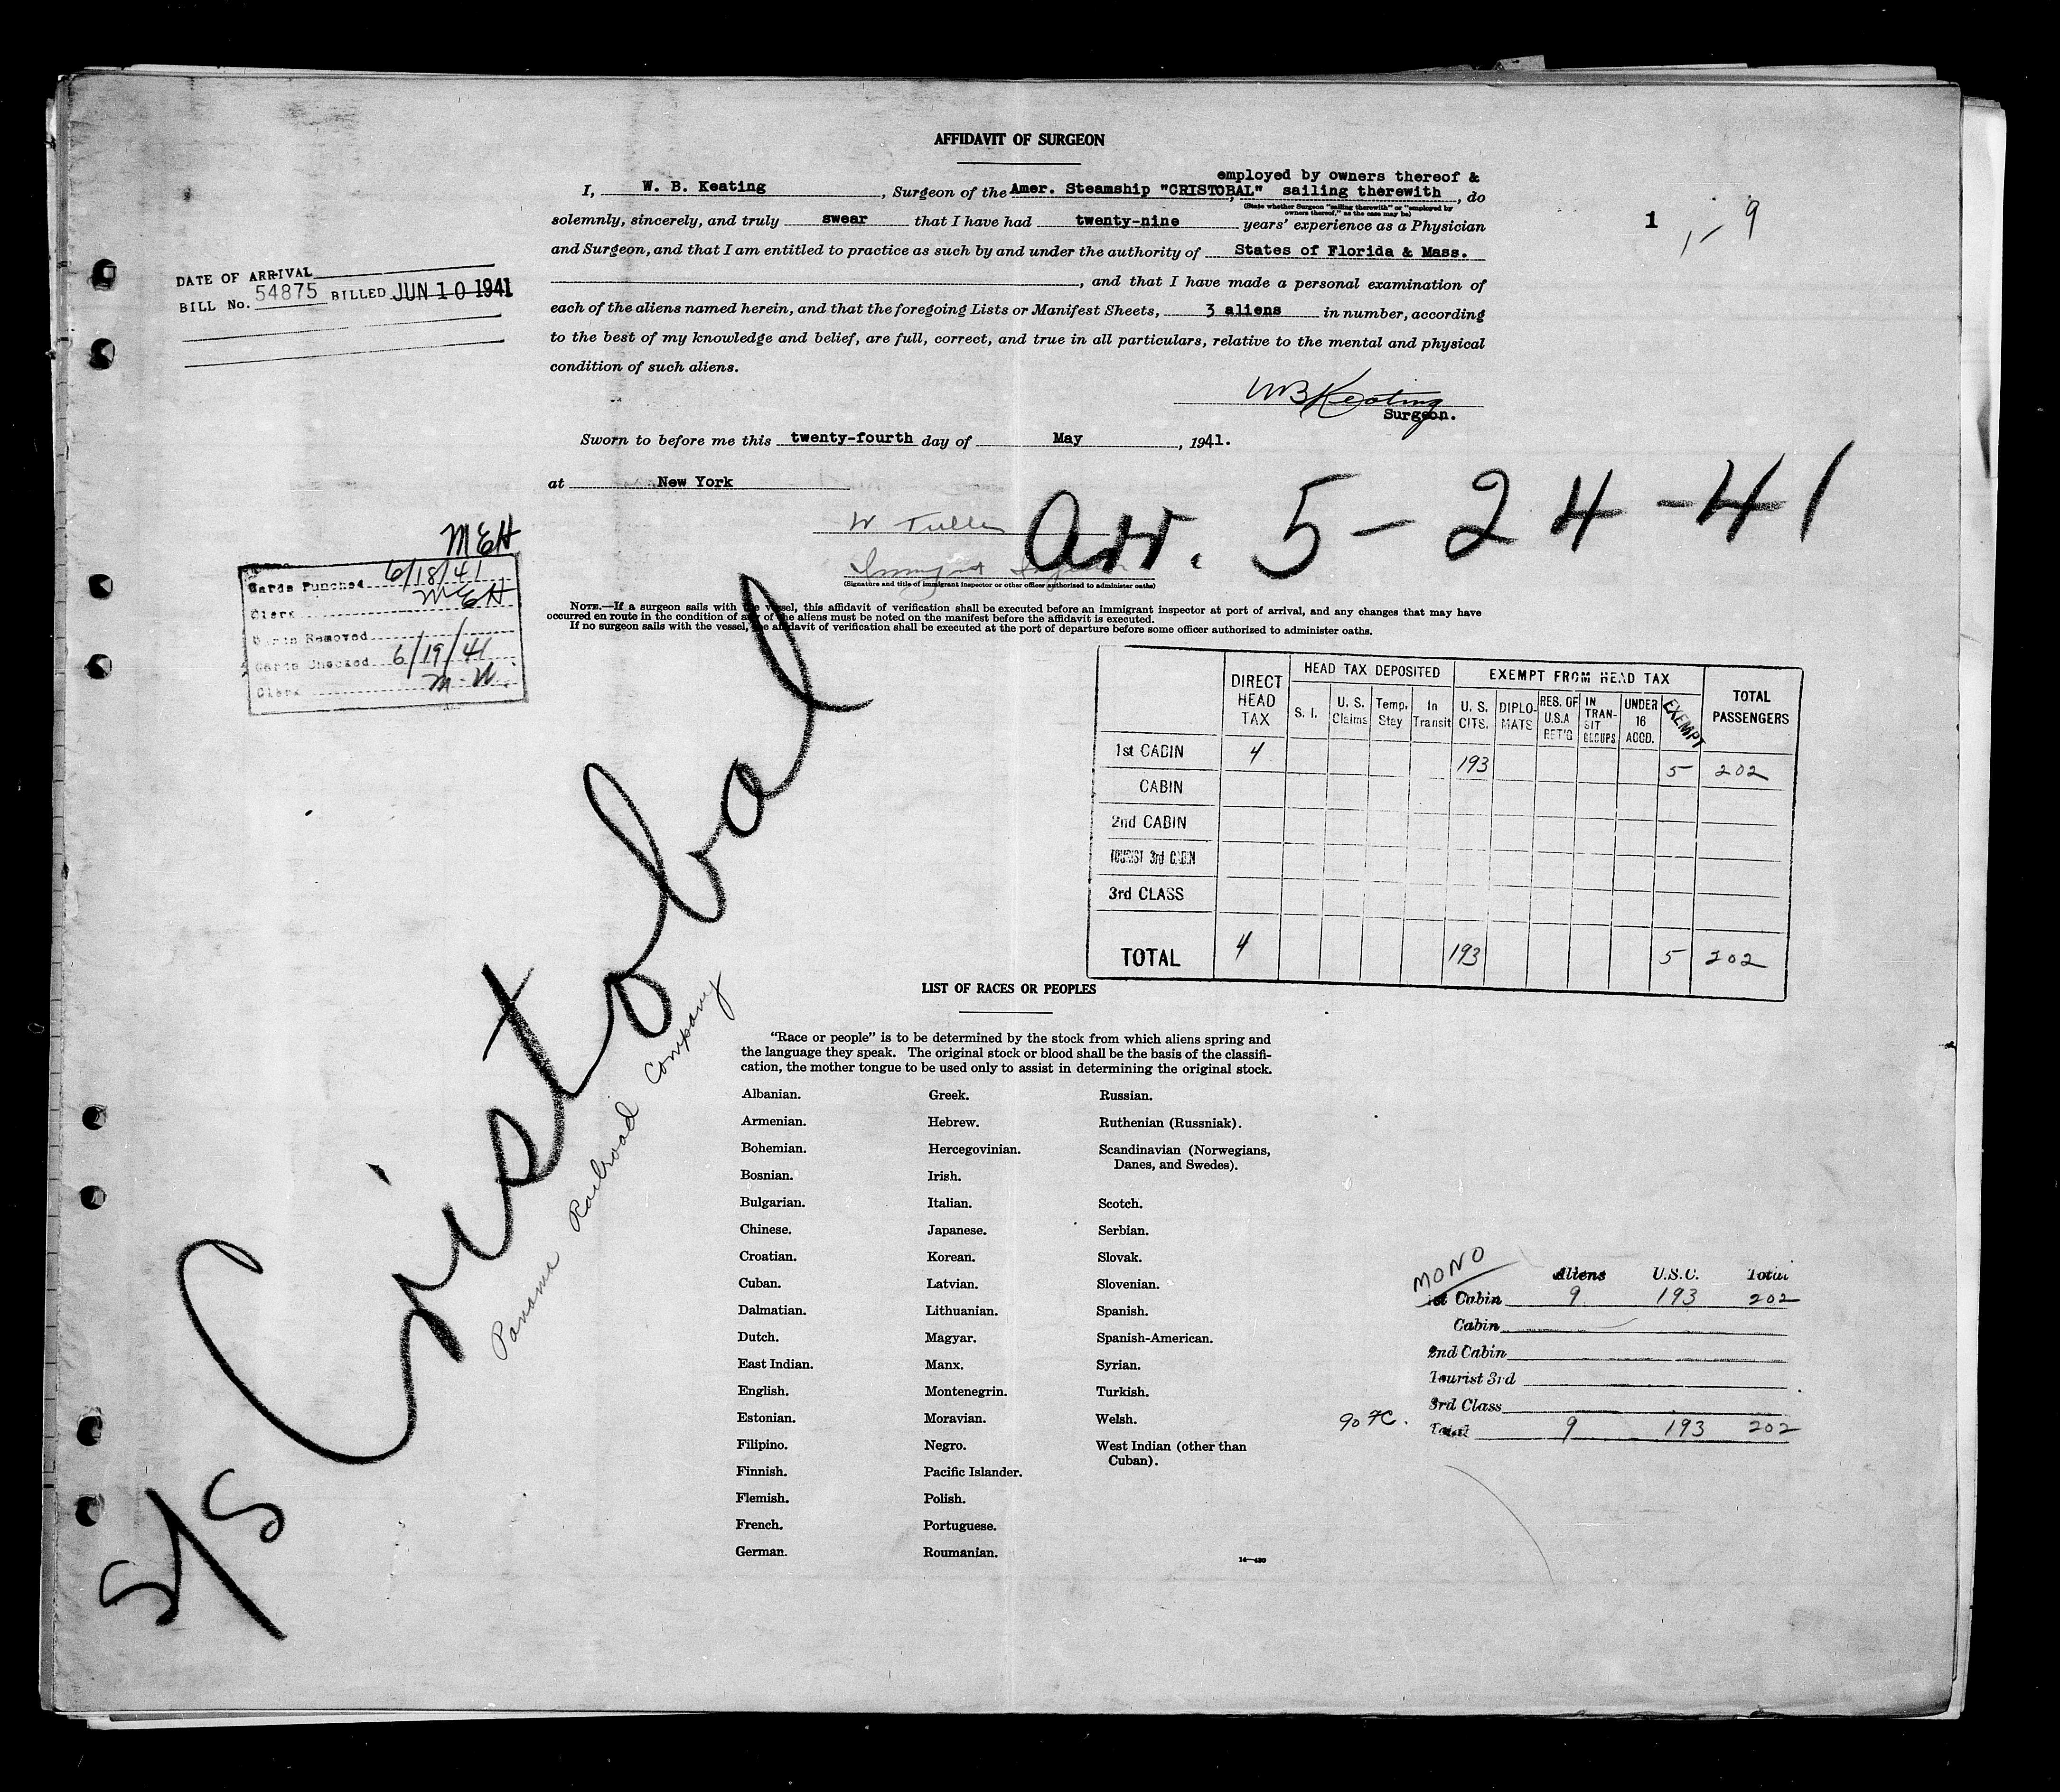 AFFIDAVIT OF SURGEON
employed by owners thereof &
I, W. B. Keating, Surgeon of the Amer. Steamship "CRISTOBAL", sailing therewith, do
(State whether Surgeon "sailing therewith" or "employed by
owners thereof," as the case may be)
solemnly, sincerely, and truly swear that I have had twenty-nine years' experience as a Physician
and Surgeon, and that I am entitled to practice as such by and under the authority of States of Florida & Mass.
, and that I have made a personal examination of
each of the aliens named herein, and that the foregoing Lists or Manifest Sheets, 3 aliens in number, according
to the best of my knowledge and belief, are full, correct, and true in all particulars, relative to the mental and physical
condition of such aliens.
WB Keating
Surgeon.
Sworn to before me this twenty-fourth day of May, 1941.
at New York
1
1-9
DATE OF ARRIVAL
BILL No. 54875 BILLED JUN 10 1941
Arr. 5-24-41
(Signature and title of immigrant inspector or other officer authorized to administer oaths)
NOTE.—If a surgeon sails with the vessel, this affidavit of verification shall be executed before an immigrant inspector at port of arrival, and any changes that may have
occurred en route in the condition of any of the aliens must be noted on the manifest before the affidavit is executed.
If no surgeon sails with the vessel, the affidavit of verification shall be executed at the port of departure before some officer authorized to administer oaths.
MEH
Cards Punched 6/18/41
Clerk MEH
Cards Removed
Cards Checked 6/19/41
Clerk M.W.
HEAD TAX DEPOSITED EXEMPT FROM HEAD TAX
DIRECT HEAD TAX S. I. U. S. Claims Temp. Stay In Transit U. S. CITS. DIPLOMATS RES. OF U.S.A RET'G IN TRANSIT GROUPS UNDER 16 ACCD. EXEMPT TOTAL PASSENGERS
1st CABIN 4 193 5 202
CABIN
2nd CABIN
TOURIST 3rd CABIN
3rd CLASS
TOTAL 4 193 5 202
S/S Cristobal
Panama Railroad Company
LIST OF RACES OR PEOPLES
"Race or people" is to be determined by the stock from which aliens spring and
the language they speak. The original stock or blood shall be the basis of the classifi-
cation, the mother tongue to be used only to assist in determining the original stock.
Albanian.
Armenian.
Bohemian.
Bosnian.
Bulgarian.
Chinese.
Croatian.
Cuban.
Dalmatian.
Dutch.
East Indian.
English.
Estonian.
Filipino.
Finnish.
Flemish.
French.
German.
Greek.
Hebrew.
Hercegovinian.
Irish.
Italian.
Japanese.
Korean.
Latvian.
Lithuanian.
Magyar.
Manx.
Montenegrin.
Moravian.
Negro.
Pacific Islander.
Polish.
Portuguese.
Roumanian.
Russian.
Ruthenian (Russniak).
Scandinavian (Norwegians,
Danes, and Swedes).
Scotch.
Serbian.
Slovak.
Slovenian.
Spanish.
Spanish-American.
Syrian.
Turkish.
Welsh.
West Indian (other than
Cuban).
14—430
MONO
Aliens U.S.C. Total
1st Cabin 9 193 202
Cabin
2nd Cabin
Tourist 3rd
3rd Class
Total 9 193 202